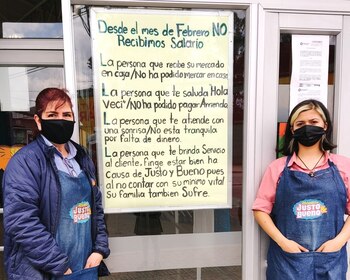 Desde el mes de Febrero NO
Recibimos Salario
La persona que recibe su mercado
en caja/No ha podido mercar en casa
La persona que te saluda Hola
Veci/No ha podido pagar Arriendo
La persona que te atiende con
una sonrisa/No esta tranquila
por falta de dinero.
La persona que te brinda Servicio
al cliente. Finge estar bien ha
Causa de Justo y Bueno pues
al no contar con su minimo vital
su Familia tambien Sufre.
JUSTO
BUENO
JUSTO
BUENO